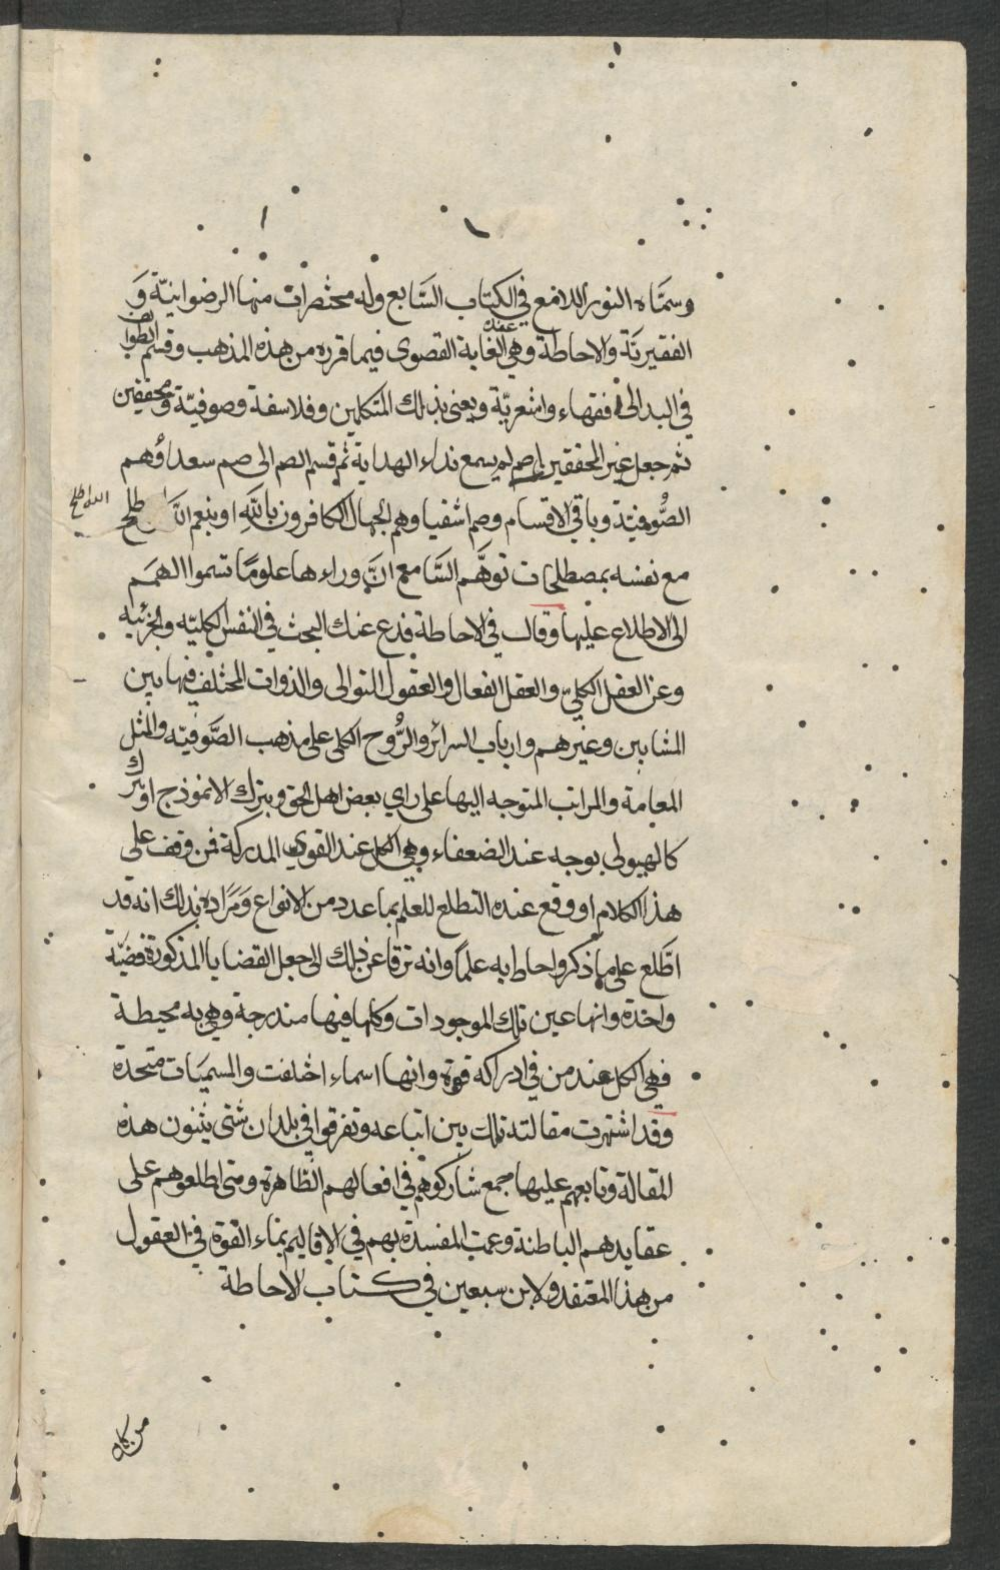 وسمّاه النور اللامع في الكتاب السّابع وله مختصرات منها الرضوانيّة وَ
الفقيريّة والاحاطة وهي عنده الغاية القصوى فيما قرره من هذه المذهب وقسم الطوايف
في البد الى فقهاء واشعريّة ويعنى بذلك المتكلمين وفلاسفة وصوفيّة ومحققين
ثم جعل غير المحققين اصم لم يسمع نداء الهداية ثم قسم الصم الى صم سعداؤهم
الصُّوفيّة وباقي الاقسام وصم اشقيا وهم الجهال الكافرون بالله او بنعم الله اصطلح
الله اصطلح
مع نفسه بمصطلحات توهَّم السّامع انَّ وراءها علومًا تسموا الهمم
الى الاطلاع عليها وقال في الاحاطة فدع عنك البحث في النفس الكليّه والجزئيه
وعن العقل الكلي والعقل الفعال والعقول التوالى والذوات المختلف فيها بين
المشايين وغيرهم وارباب السرائر والرُّوح الكلى على مذهب الصَّوفيّه والمثل
المعامة والمراتب المتوجه اليها على راي بعض اهل الحق وبترك الانموذج او يترك
كالهيولى بوجه عند الضعفاء وهي الكل عند القوي المدركة فمن وقف على
هذا الكلام او وقع عنده التطلع للعلم بما عدد من الانواع وَمَراده بذلك انه قد
اطّلع على ما ذكر واحاط به علمًا وانه ترقا عن ذلك الى جعل القضايا المذكورة قضيّة
واحدة وانها عين تلك الموجودات وكلها فيها مندرجة وهي به محيطة
فهي الكل عند من في ادراكه قوة وانها اسماء اختلفت والمسميَات متحدة
وقد اشتهرت مقالته تلك بين اتباعه وتفرقوا في بلدان شتى يثنون هذه
المقالة وتابعهم عليها جمع شاركوهم في افعالهم الظاهرة ومتى اطلعوهم على
عقايدهم الباطنة وعمت المفسدة بهم في الاقاليم بماء القوة في العقول
من هذا المعتقد ولابن سبعين في كتاب الاحاطة
من كلامه